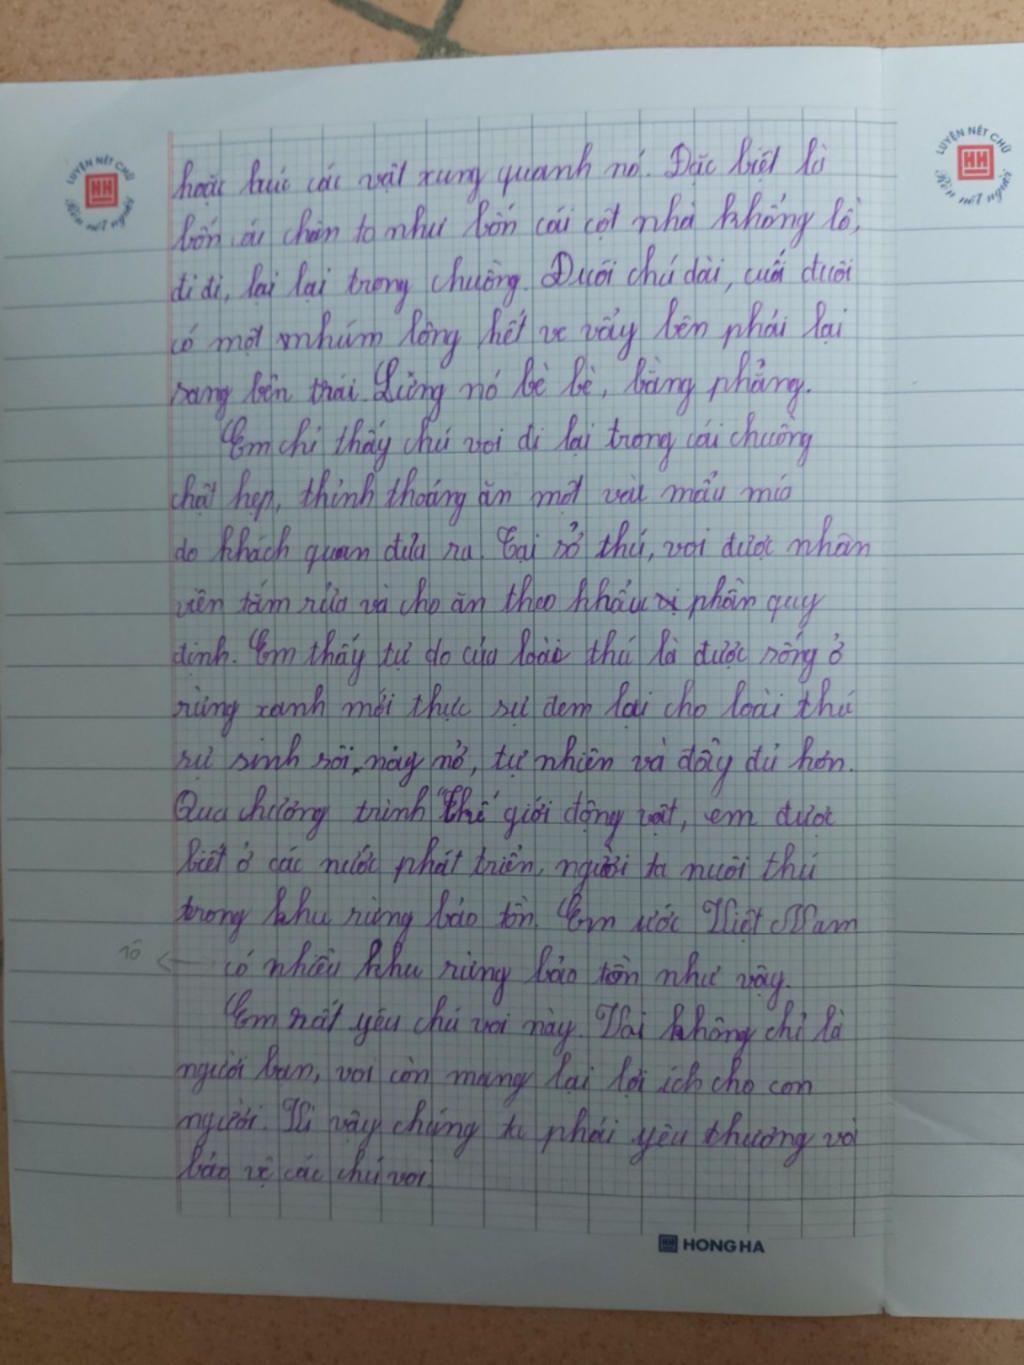 LUYỆN NÉT CHỮ
Rèn nết người
LUYỆN NÉT CHỮ
Rèn nết người
hoặc húc các vật xung quanh nó. Đặc biệt là
bốn cái chân to như bốn cái cột nhà khổng lồ,
đi đi, lại lại trong chuồng. Đuôi chú dài, cuối đuôi
có một nhúm lông hết ve vẩy bên phải lại
sang bên trái. Lưng nó bè bè, bằng phẳng.
Em chỉ thấy chú voi đi lại trong cái chuồng
chật hẹp, thỉnh thoảng ăn một vài mẩu mía
do khách quan đưa ra. Tại sở thú, voi được nhân
viên tắm rửa và cho ăn theo khẩu phần quy
định. Em thấy tự do của loài thú là được sống ở
rừng xanh mới thực sự đem lại cho loài thú
sự sinh sôi, nảy nở, tự nhiên và đầy đủ hơn.
Qua chương trình "Thế giới động vật, em được
biết ở các nước phát triển, người ta nuôi thú
trong khu rừng bảo tồn. Em ước Việt Nam
có nhiều khu rừng bảo tồn như vậy.
Em rất yêu chú voi này. Voi không chỉ là
người bạn, voi còn mang lại lợi ích cho con
người. Vì vậy chúng ta phải yêu thương và
bảo vệ các chú voi.
HH HONG HA